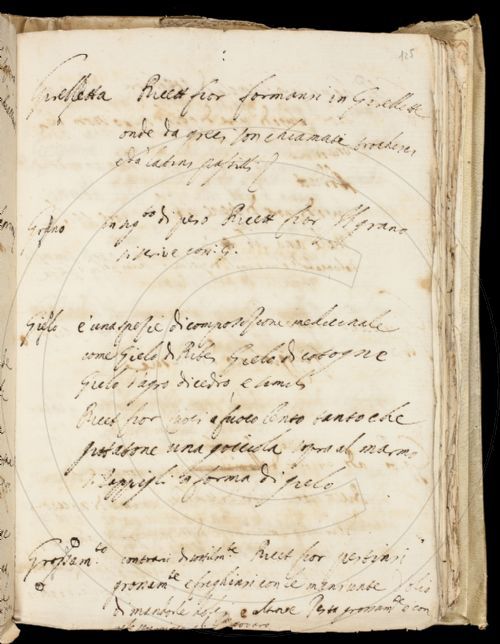 125
Girelletta Ricett fior formansi in Girellette
onde da greci son chiamate trochisci
e da latini pastilli
Grano in sig.to di peso Ricett fior Il grano
si scrive così G.
Gielo è una spezie di composizione medicinale
come Gielo di Ribes Gielo di cotogne
Gielo d'agro di cedro e simili
Ricett fior a fuoco lento tanto che
gettatone una gocciola sopra al marmo
si rappigli in forma di gielo
Grossam.te contrario di sottilm.te Ricett fior pestinsi
grossam.te e freghinsi con le mani unte
di mandorle e altrove Pesta grossam.te e con